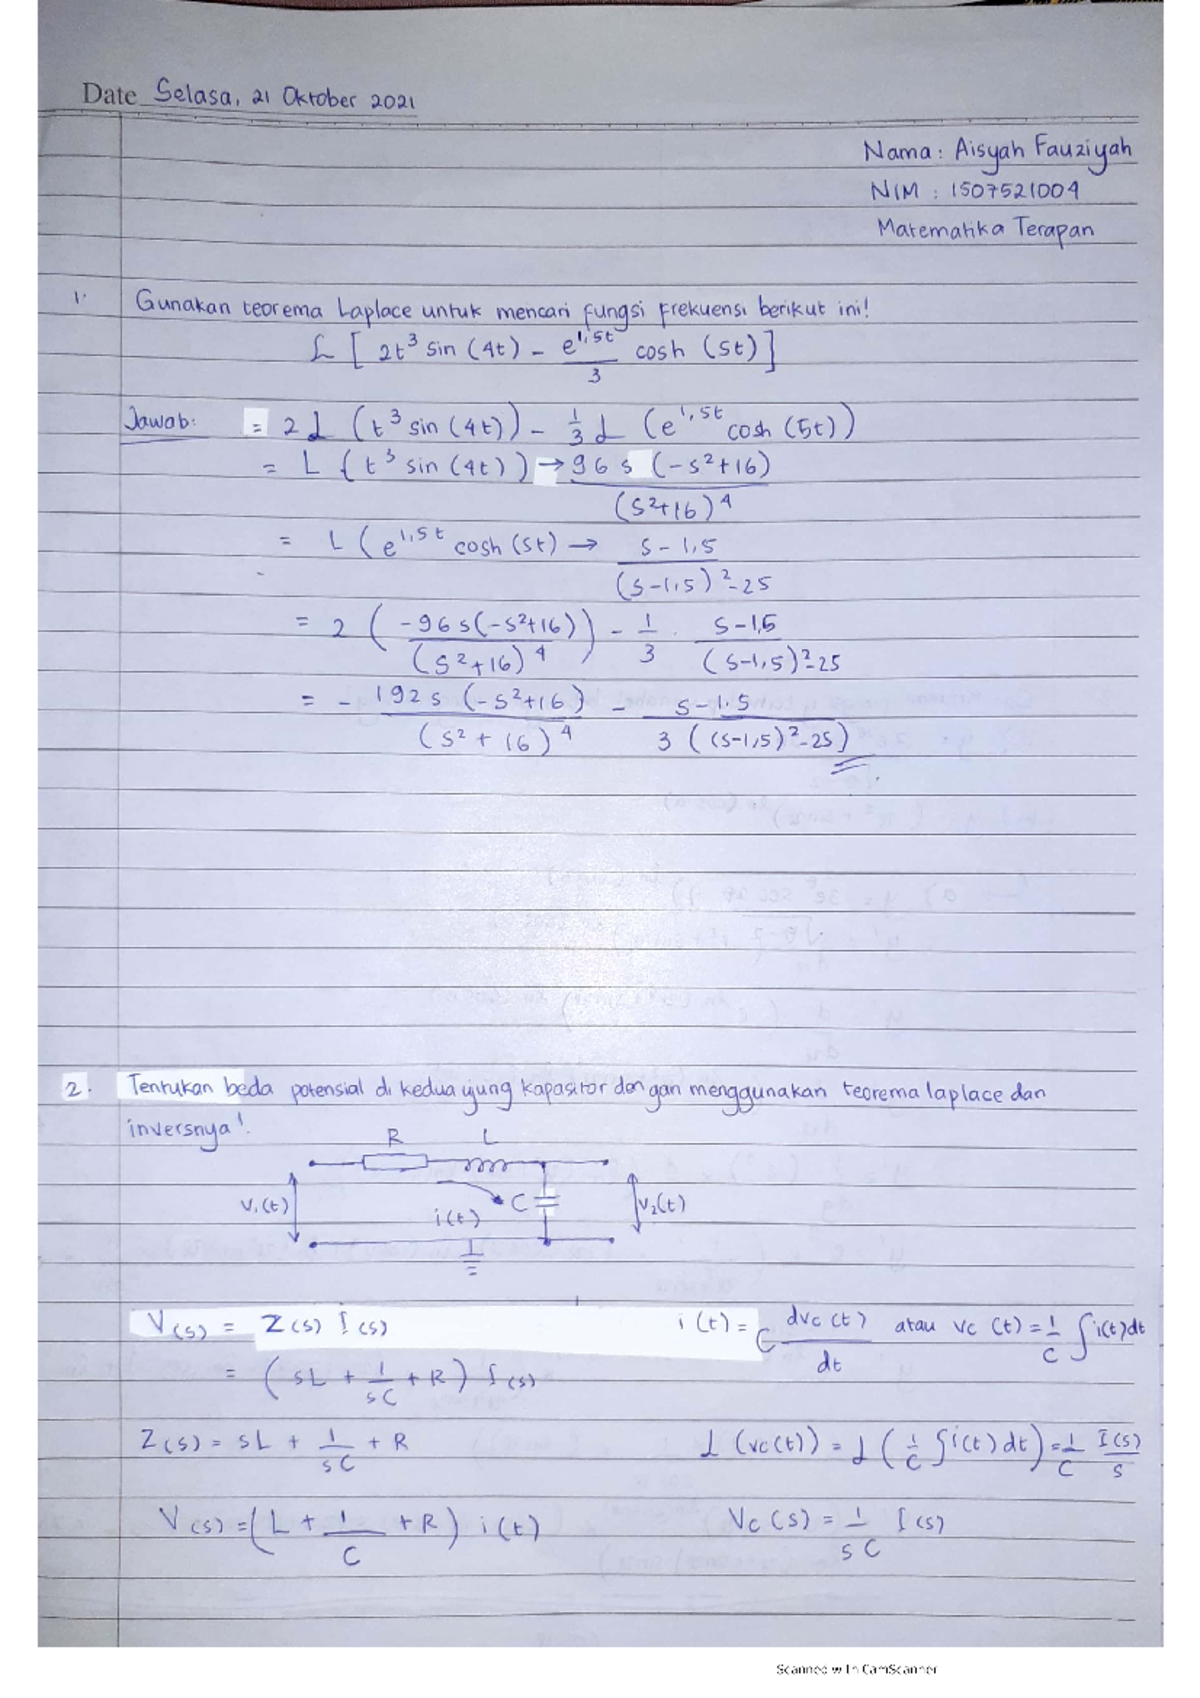 Date Selasa, 21 Oktober 2021
Nama : Aisyah Fauziyah
NIM : 1507521004
Matematika Terapan
1. Gunakan teorema Laplace untuk mencari fungsi frekuensi berikut ini!
£ [ 2t³ sin (4t) – e^1,5t / 3 cosh (5t) ]
Jawab: = 2 L (t³ sin (4t)) – 1/3 L (e^1,5t cosh (5t))
= L { t³ sin (4t) ) → 96 s (-s²+16) / (s²+16)⁴
= L ( e^1,5t cosh (5t) → s – 1,5 / (s-1,5)² - 25
= 2 ( -96 s(-s²+16) / (s²+16)⁴ ) – 1/3 . s – 1,5 / (s-1,5)² - 25
= - 192 s (-s²+16) / (s² + 16)⁴ – s – 1.5 / 3 ( (s-1,5)² - 25)
2. Tentukan beda potensial di kedua ujung kapasitor dengan menggunakan teorema laplace dan
inversnya!
R L
V₁(t) i(t) C V₂(t)
V(s) = Z(s) I(s) i (t) = C dvc (t) / dt atau vc (t) = 1/C ∫ i(t) dt
= ( sL + 1/sC + R ) I(s)
Z(s) = sL + 1/sC + R L (vc(t)) = L ( 1/C ∫ i(t) dt ) = 1/C I(s)/s
V(s) = ( L + 1/C + R ) i(t) Vc (s) = 1/sC I(s)
Scanned with CamScanner